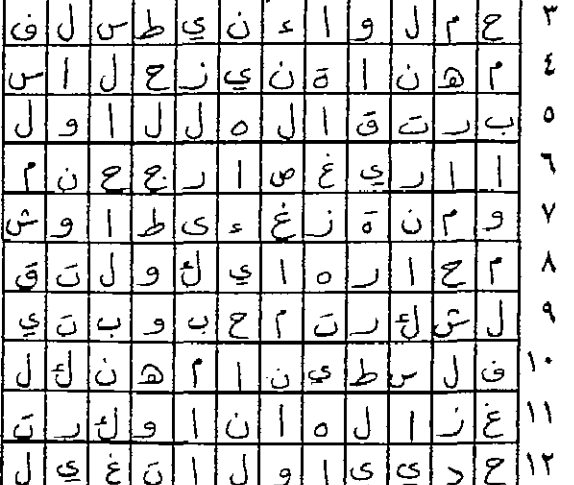 ٣ ح م ل و ا ء ن ي ط س ل ف
٤ م ه ن ا ة ن ي ز ح ل ا س
٥ ب ر ت ق ا ل ه ل ل ا و ل
٦ ا ا ر ي غ ص ا ر ج ح ن م
٧ و م ن ة ز غ ء ى ط ا و ش
٨ م ح ا ر ه ا ي ك و ل ت ق
٩ ل ش ك ر ت م ح ب و ب ت ي
١٠ ف ل س ط ي ن ا م ه ن ك ل
١١ غ ز ا ل ه ا ن ا و ك ر ت
١٢ ح د ي ى ا و ل ا ت غ ي ل